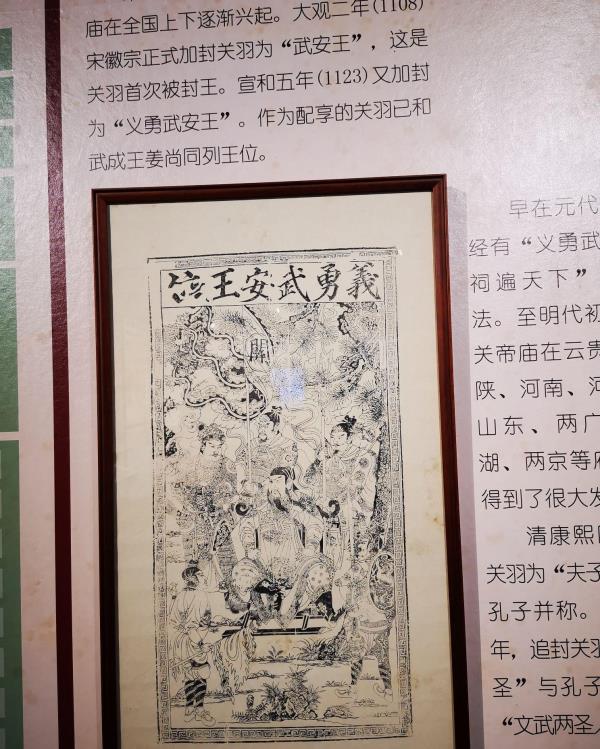 庙在全国上下逐渐兴起。大观二年(1108)
宋徽宗正式加封关羽为“武安王”，这是
关羽首次被封王。宣和五年(1123)又加封
为“义勇武安王”。作为配享的关羽已和
武成王姜尚同列王位。
義勇武安王
關
早在元代
经有“义勇武
祠遍天下”
法。至明代初
关帝庙在云贵
陕、河南、河
山东、两广
湖、两京等府
得到了很大发
清康熙
关羽为“夫子
孔子并称。
年，追封关羽
圣”与孔子
“文武两圣人